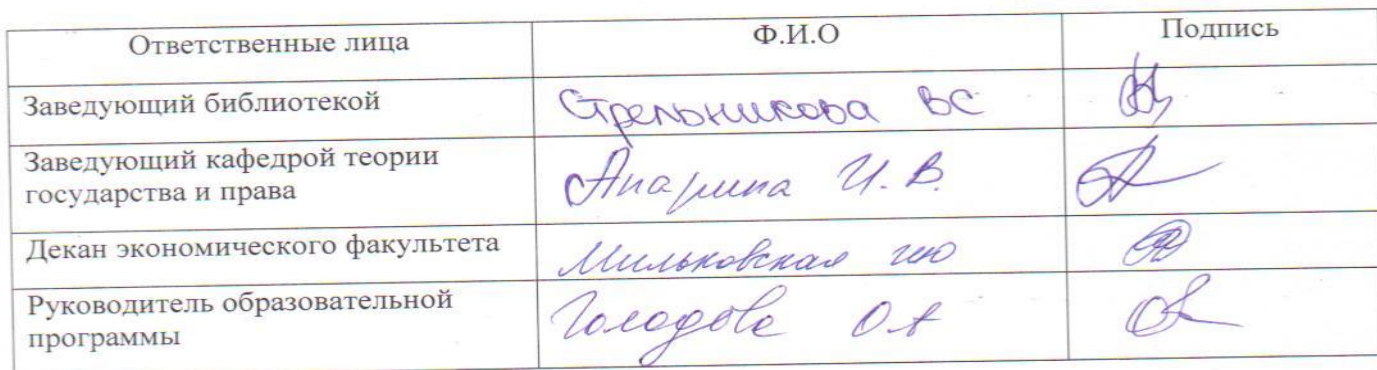 Ответственные лица Ф.И.О Подпись
Заведующий библиотекой Стрельникова ВС
Заведующий кафедрой теории
государства и права Апарина И. В.
Декан экономического факультета Мильковская
Руководитель образовательной
программы ОА